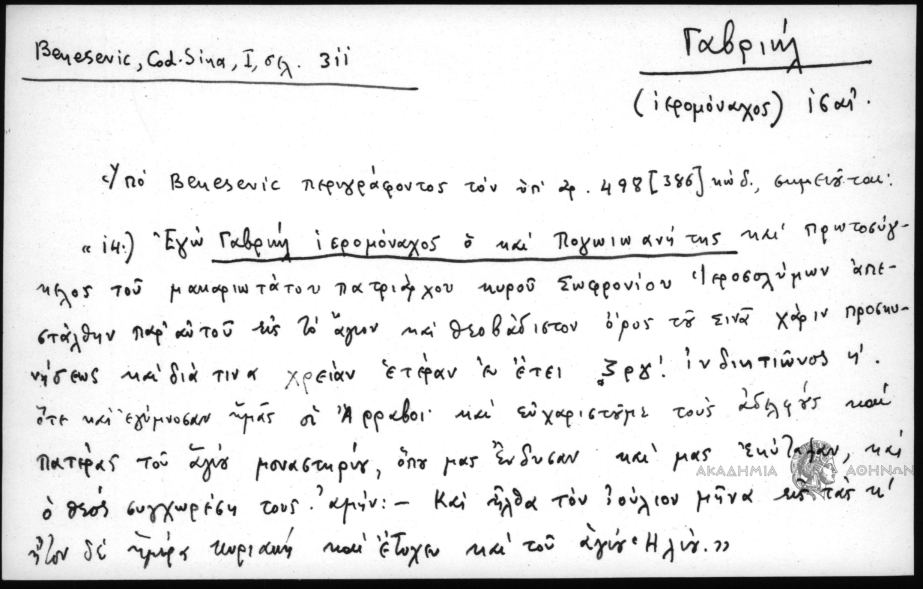 Benesevic, Cod. Sina, I, σελ. 311
Γαβριήλ
(ἱερομόναχος) ις αἰ.
Ὑπό Benesevic περιγράφοντος τὸν ὑπ' ἀρ. 498 [386] κώδ., σημειοῦται:
«14.) Ἐγὼ Γαβριήλ ἱερομόναχος ὁ καὶ Πογωιωανήτης καὶ πρωτοσύγ-
κελος τοῦ μακαριωτάτου πατριάρχου κυροῦ Σωφρονίου Ἱεροσολύμων ἀπε-
στάλθην παρ' αὐτοῦ εἰς τὸ ἅγιον καὶ θεοβάδιστον ὄρος τοῦ Σινᾶ χάριν προσκυ-
νήσεως καὶ διά τινα χρείαν ἑτέραν ἐν ἔτει ͵ζργ! ἰνδικτιῶνος η'.
ὅτε καὶ ἐγύμνοσαν ἡμᾶς οἱ Ἀρραβοι καὶ εὐχαριστοῦμε τοὺς ἀδελφούς καί
πατέρας τοῦ ἁγίου μοναστηρίου, ὅπου μας ἔνδυσαν καὶ μας καὶ
ὁ θεός συγχωρέση τους. ἀμήν:— Καὶ ἦλθα τὸν Ἰούλιον μῆνα εἰς τὰς κ'
ἦτον δέ ἡμέρα κυριακή καὶ ἔτυχεν καὶ τοῦ ἁγίου Ἠλιοῦ.»
ΑΚΑΔΗΜΙΑ ΑΘΗΝΩΝ